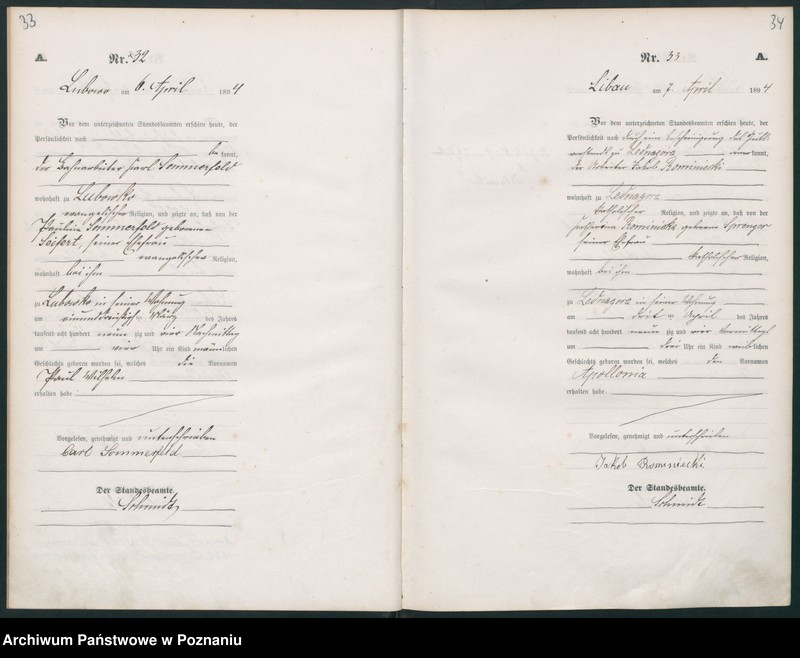 33
A.
Nr. 32
Lubowo am 6. April 1894
Vor dem unterzeichneten Standesbeamten erschien heute, der
Persönlichkeit nach
bekannt,
der Bahnarbeiter Karl Sommerfeld
wohnhaft zu Lubowko
evangelischer Religion, und zeigte an, daß von der
Pauline Sommerfeld geborenen
Seifert, seiner Ehefrau
evangelischer Religion,
wohnhaft bei ihm
zu Lubowko in seiner Wohnung
am einunddreißigsten März des Jahres
tausend acht hundert neunzig und vier Nachmittag
um vier Uhr ein Kind männlichen
Geschlechts geboren worden sei, welches die Vornamen
Paul Wilhelm
erhalten habe.
Vorgelesen, genehmigt und unterschrieben
Carl Sommerfeld
Der Standesbeamte.
Schmidt
34
Nr. 33
A.
Libau am 7. April 1894
Vor dem unterzeichneten Standesbeamten erschien heute, der
Persönlichkeit nach durch eine Bescheinigung des
zu Lednagora kannt,
der Arbeiter Jakob Rominiecki
wohnhaft zu Lednagora
katholischer Religion, und zeigte an, daß von der
Rominiecka geborenen
seiner Ehefrau
katholischer Religion,
wohnhaft bei ihm
zu Lednagora in seiner Wohnung
am dritten April des Jahres
tausend acht hundert neunzig und vier Vormittags
um drei Uhr ein Kind weiblichen
Geschlechts geboren worden sei, welches den Vornamen
Apollonia
erhalten habe.
Vorgelesen, genehmigt und unterschrieben
Jakob Rominiecki
Der Standesbeamte.
Schmidt
Archiwum Państwowe w Poznaniu